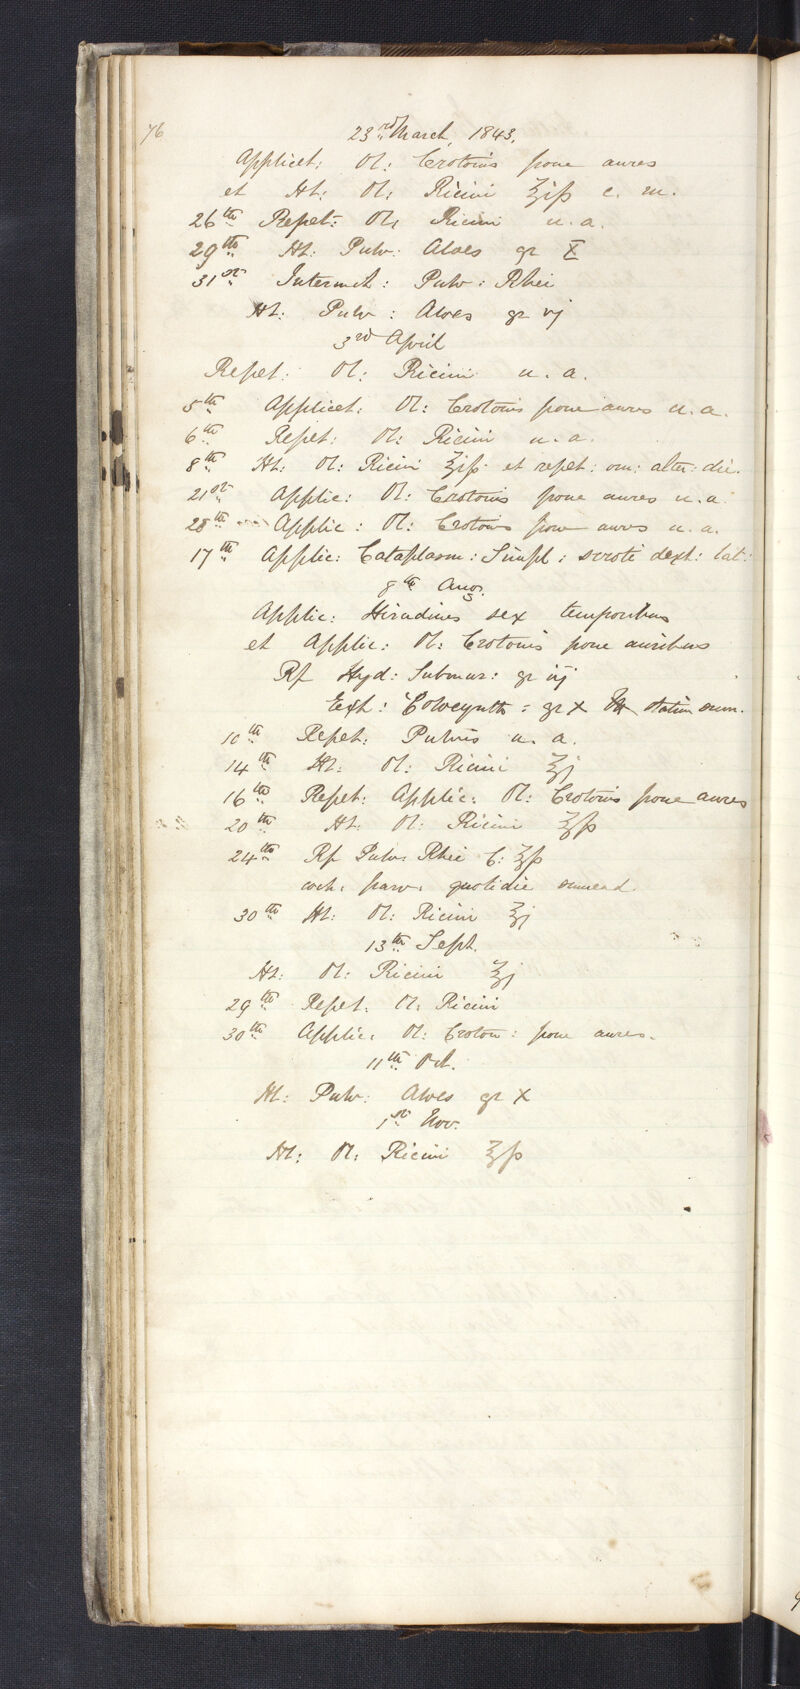 76
23rd March, 1843.
Applicet: Ol: Crotonis pone aures
et Ht: Ol: Ricini ℥iſs c. m.
26th Repet: Ol: Ricini u. a.
29th Ht: Pulv: Aloes gr X
31st Intermit: Pulv: Rhei
Ht: Pulv: Aloes gr vj
3rd April
Repet: Ol: Ricini u. a.
5th Applicet: Ol: Crotonis pone aures u. a.
6th Repet: Ol: Ricini u. a.
8th Ht: Ol: Ricini ℥iſs et repet: om: alter: die.
21st Applic: Ol: Crotonis pone aures u. a.
28th Applic: Ol: Crotonis pone aures u. a.
17th Applic: Cataplasm: Simpl: scroti dext: lat:
8th Aug.
Applic: Hirudines sex temporibus
et Applic: Ol: Crotonis pone auribus
Rx Hyd: Submur: gr iij
Ext: Colocynth: gr x statim sum.
10th Repet: Pulvis u. a.
14th Ht: Ol: Ricini ℥j
16th Repet: Applic: Ol: Crotonis pone aures
20th Ht: Ol: Ricini ℥ſs
24th Rx Pulv: Rhei C: ℥ſs
coch: parv: quotidie sumend.
30th Ht: Ol: Ricini ℥j
13th Sept.
Ht: Ol: Ricini ℥j
29th Repet: Ol: Ricini
30th Applic: Ol: Croton: pone aures.
11th Oct.
Ht: Pulv: Aloes gr X
1st Nov.
Ht: Ol: Ricini ℥ſs